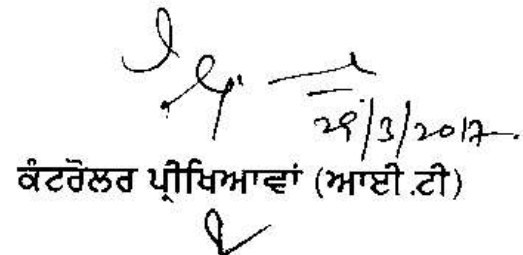 29/3/2017
ਕੰਟਰੋਲਰ ਪ੍ਰੀਖਿਆਵਾਂ (ਆਈ.ਟੀ)